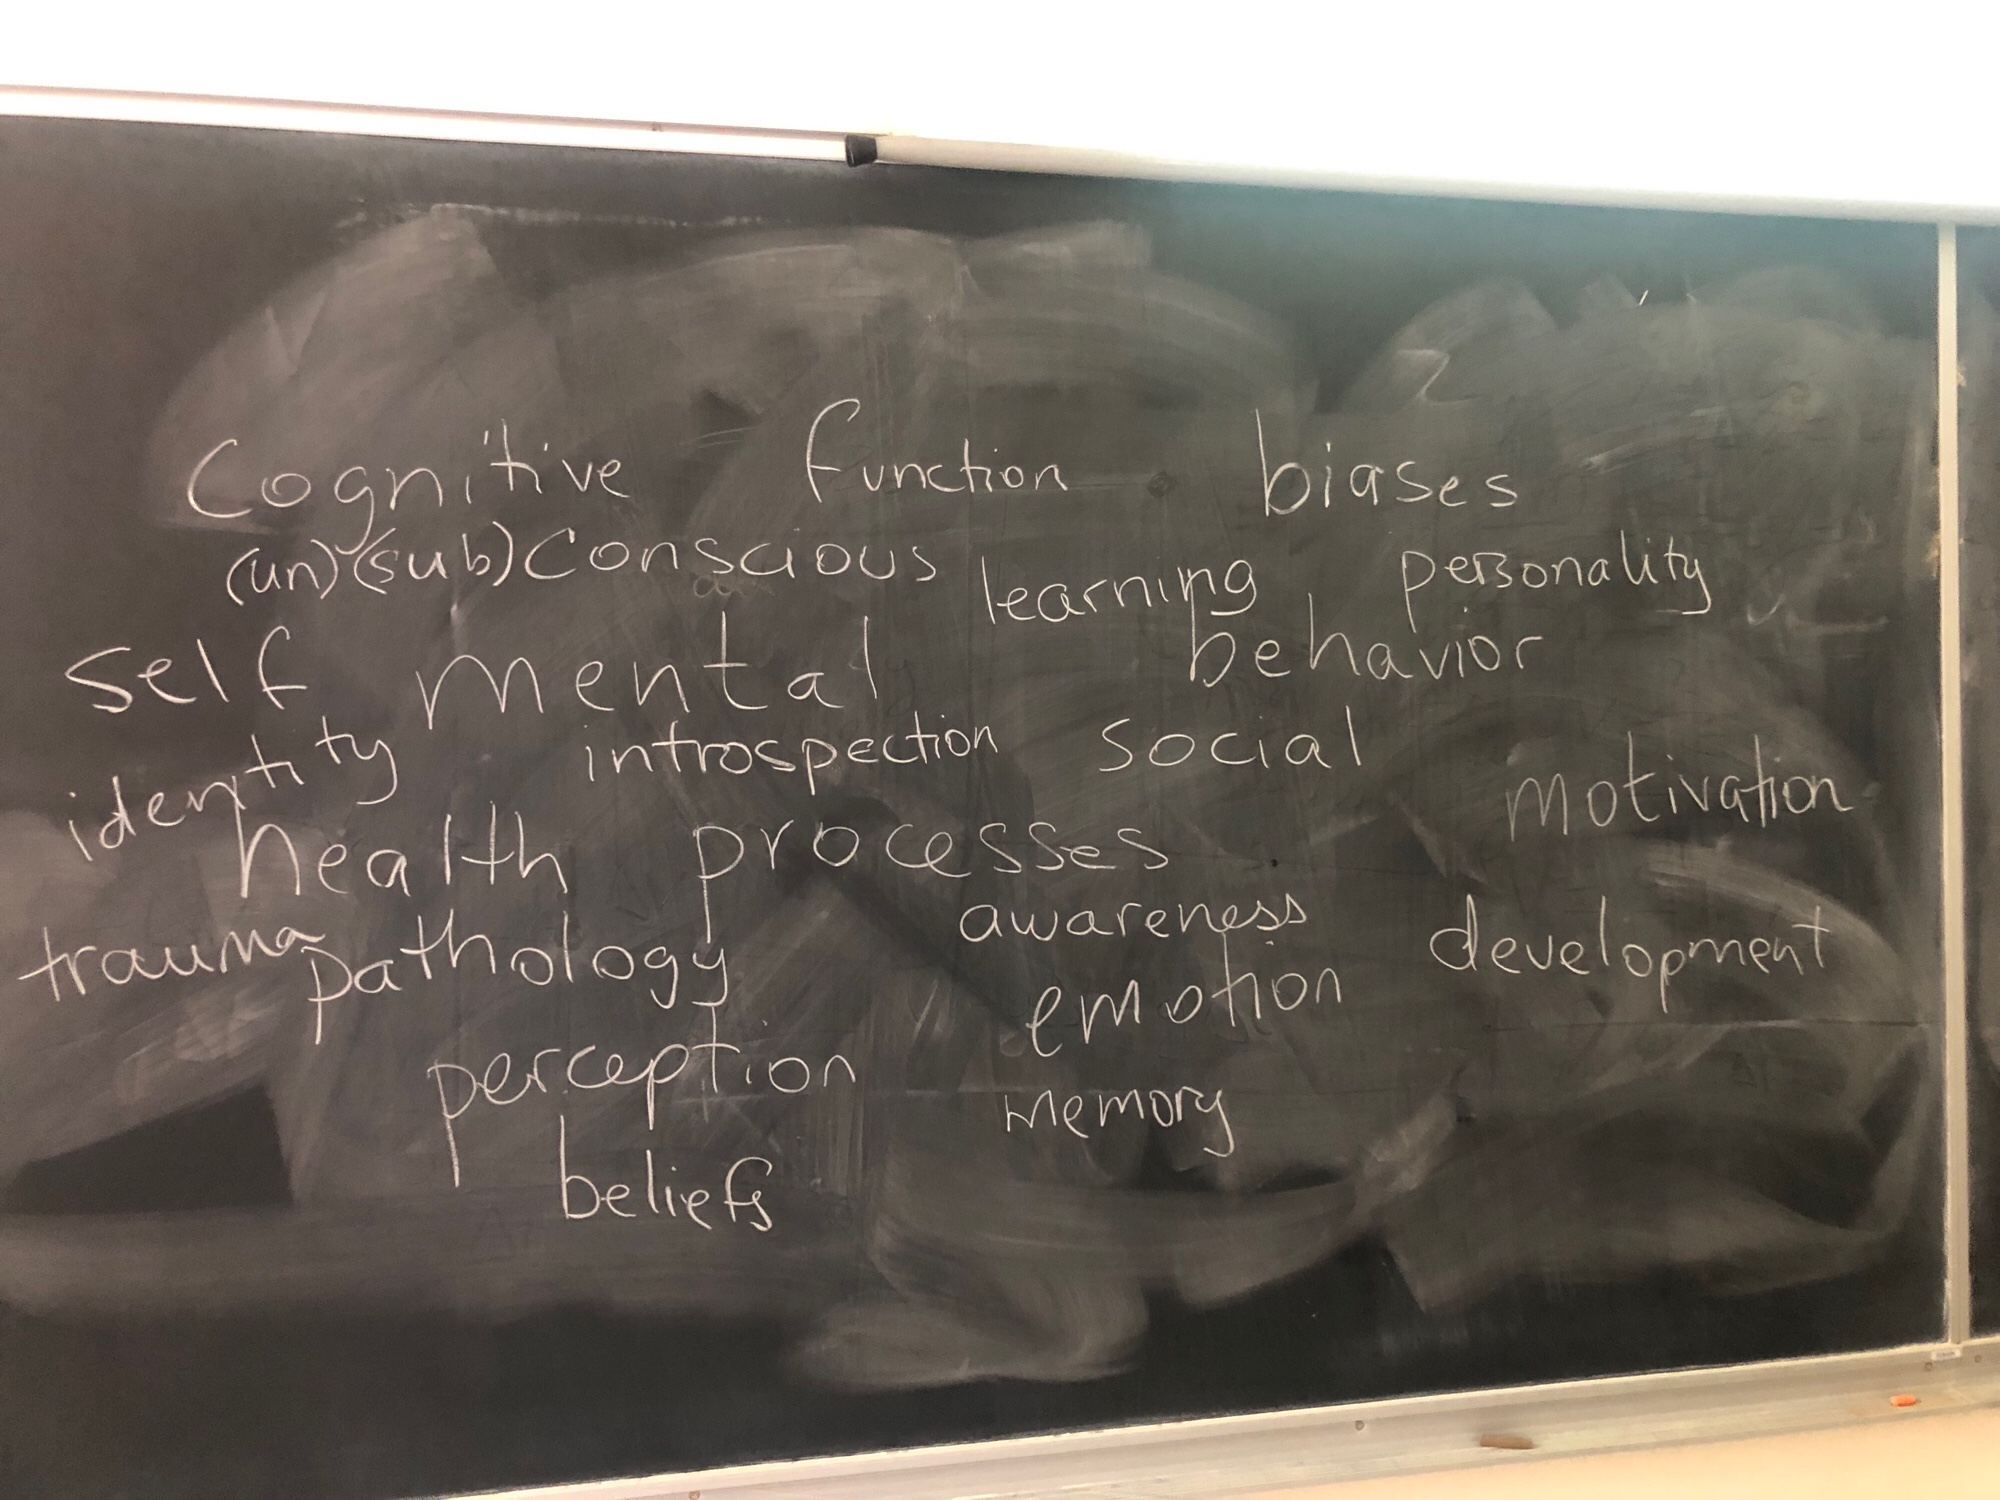 Cognitive function biases
(un)(sub)conscious learning, personality
self mental behavior
identity introspection social motivation
health processes
trauma pathology awareness development
emotion
perception memory
beliefs